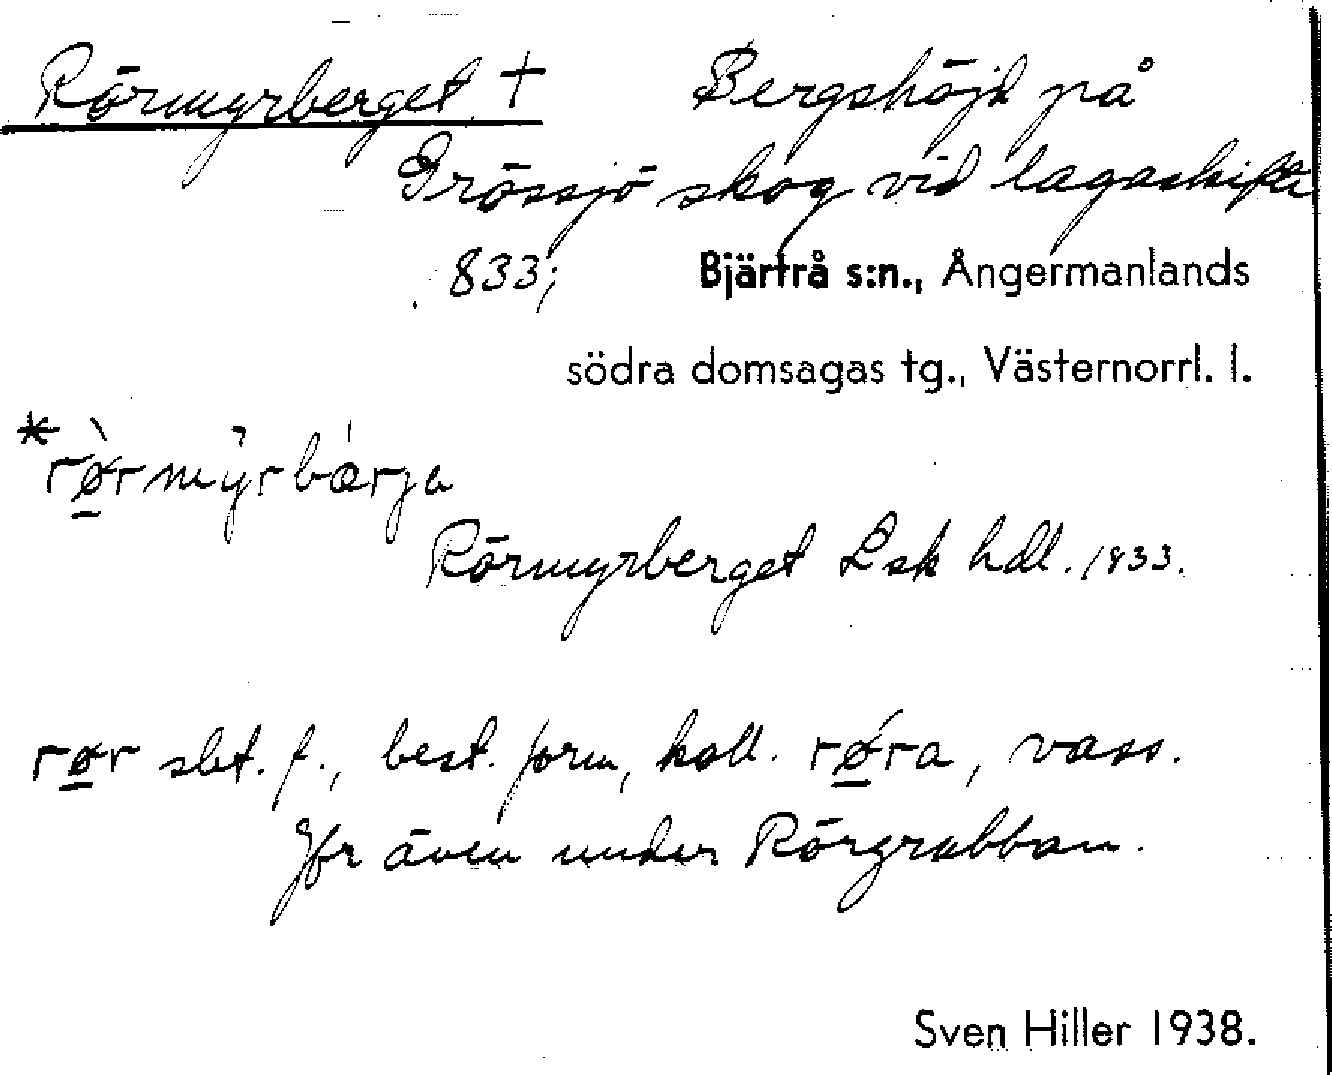 Rörmyrberget + Bergshöjd på
Grössjö skog vid lagaskifte
1833; Bjärtrå s:n., Ångermanlands
södra domsagas tg., Västernorrl. l.
*rø̱̀rmỳrbǽrja
Rörmyrberget Lsk hdl. 1833.
rø̱r sbt. f., best. form, koll. rǿ̱ra, vass.
Jfr även under Rörgrubban.
Sven Hiller 1938.